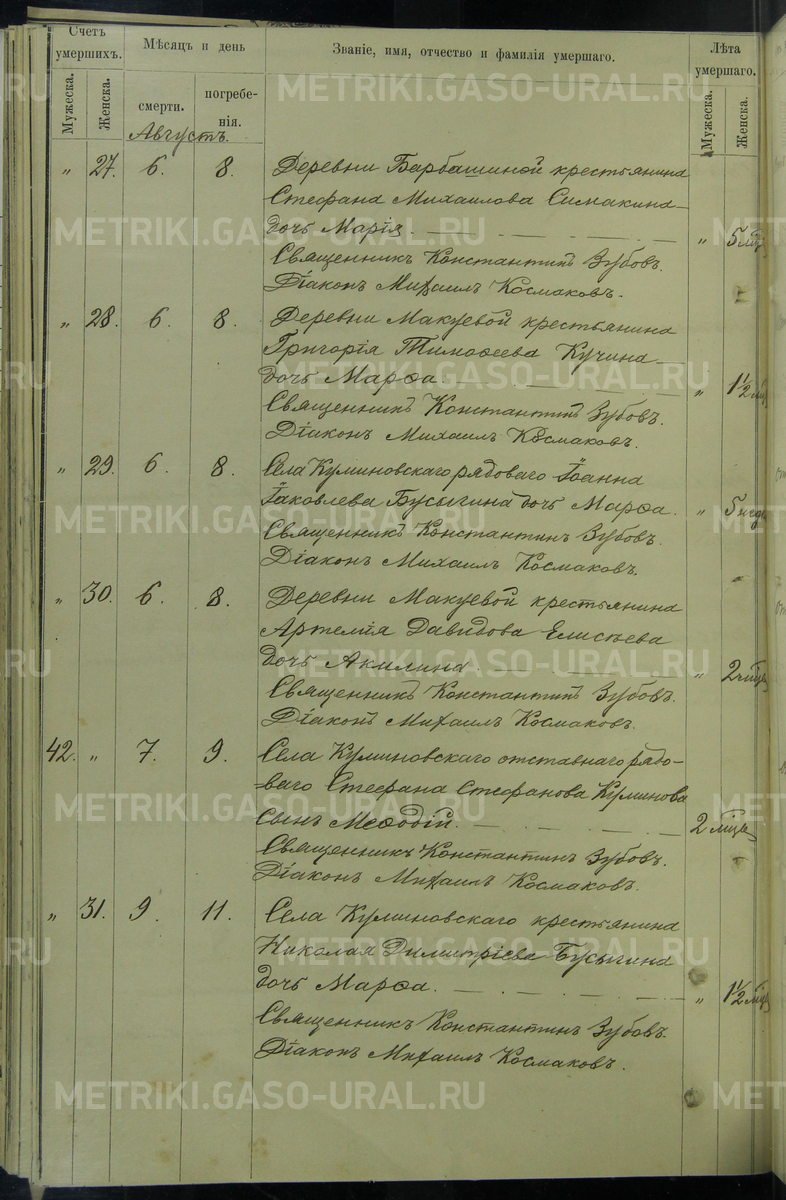 Счетъ умершихъ.
Мѣсяцъ и день
Званіе, имя, отчество и фамилія умершаго.
Лѣта умершаго.
Мужеска.
Женска.
смерти.
погребе-
нія.
Мужеска.
Женска.
Августъ.
" 27. 6. 8. Деревни Барбашиной крестьянина
Стефана Михаилова Симакина
дочь Марія. " 5 мѣс
Священникъ Константинъ Зубовъ.
Діаконъ Михаилъ Космаковъ.
" 28. 6. 8. Деревни Макуевой крестьянина
Григорія Тимоѳеева Кучина
дочь Марѳа. " 1½
Священникъ Константинъ Зубовъ.
Діаконъ Михаилъ Космаковъ.
" 29. 6. 8. Села Куминовскаго рядоваго Іоанна
Іаковлева Бусыгина дочь Марѳа. " 5 нед
Священникъ Константинъ Зубовъ.
Діаконъ Михаилъ Космаковъ.
" 30. 6. 8. Деревни Макуевой крестьянина
Артемія Давидова Елисѣева
дочь Акилина. " 2
Священникъ Константинъ Зубовъ.
Діаконъ Михаилъ Космаковъ.
42. " 7. 9. Села Куминовскаго отставнаго рядо-
-ваго Стефана Стефанова Куминова
сынъ Меѳодій. 2 мѣс
Священникъ Константинъ Зубовъ.
Діаконъ Михаилъ Космаковъ.
" 31. 9. 11. Села Куминовскаго крестьянина
Николая Димитріева Бусыгина
дочь Марѳа. " 1½ мѣс
Священникъ Константинъ Зубовъ.
Діаконъ Михаилъ Космаковъ.
METRIKI.GASO-URAL.RU